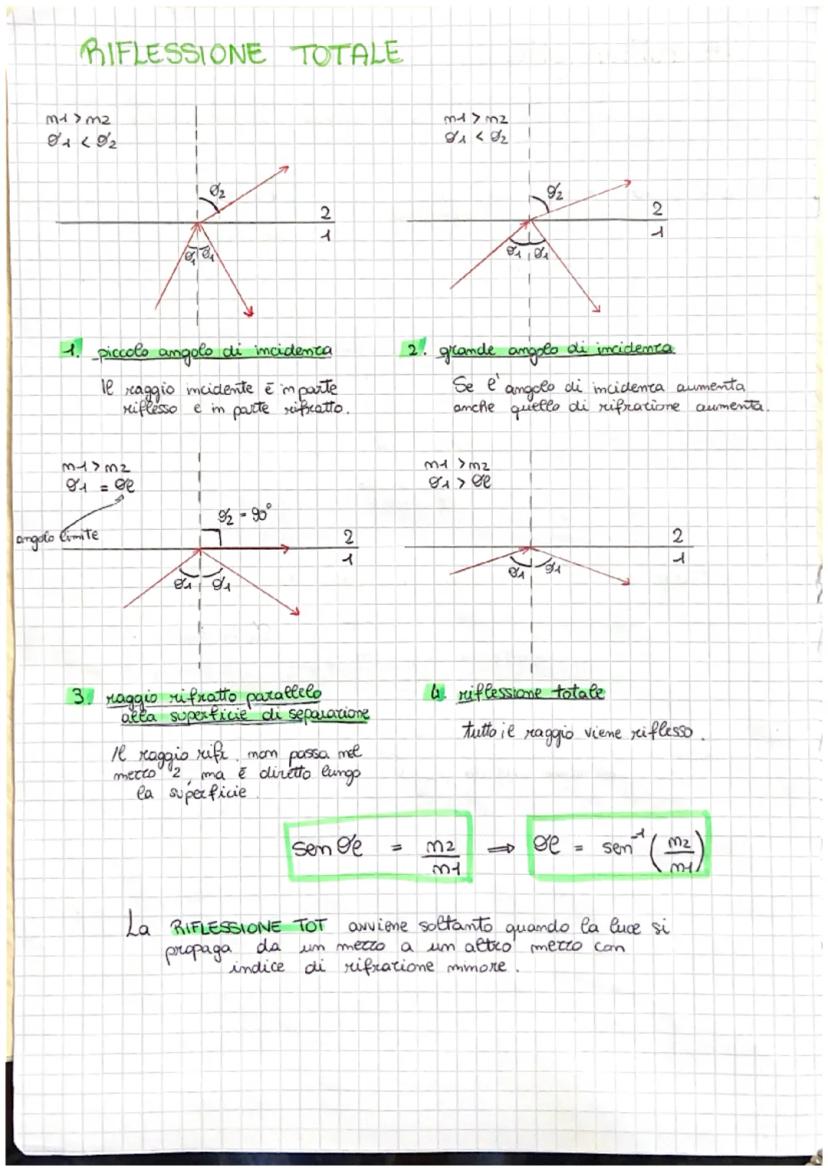 RIFLESSIONE TOTALE
n1 > n2
θ1 < θ2
θ2
2
1
θ1 θ1
n1 > n2
θ1 < θ2
θ2
2
1
θ1 θ1
1. piccolo angolo di incidenza
Il raggio incidente è in parte
riflesso e in parte rifratto.
2. grande angolo di incidenza
Se l'angolo di incidenza aumenta
anche quello di rifrazione aumenta.
n1 > n2
θ1 = θl
angolo limite
θ2 = 90°
2
1
θ1 θ1
n1 > n2
θ1 > θl
2
1
θ1 θ1
3. raggio rifratto parallelo
alla superficie di separazione
Il raggio rifr. non passa nel
mezzo 2, ma è diretto lungo
la superficie.
4. riflessione totale
tutto il raggio viene riflesso.
sen θl = n2/n1 ⇒ θl = sen⁻¹ (n2/n1)
La RIFLESSIONE TOT avviene soltanto quando la luce si
propaga da un mezzo a un altro mezzo con
indice di rifrazione minore.